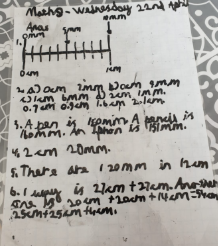 Maths - Wednesday 22nd April
0mm 5mm 10mm
0cm 1cm
2. a) 0cm 2mm b) 0cm 9mm
c) 1cm 6mm d) 2cm 1mm.
0.2cm 0.9cm 1.6cm 2.1cm.
3. A pen is 150mm A pencil is
160mm. An iphon is 151mm.
4. 2cm 20mm.
5. There are 120mm in 12cm
6. 1 way is 27cm + 27cm. Another
one is 20cm + 20cm + 14cm = 54cm
25cm + 25cm + 4cm.